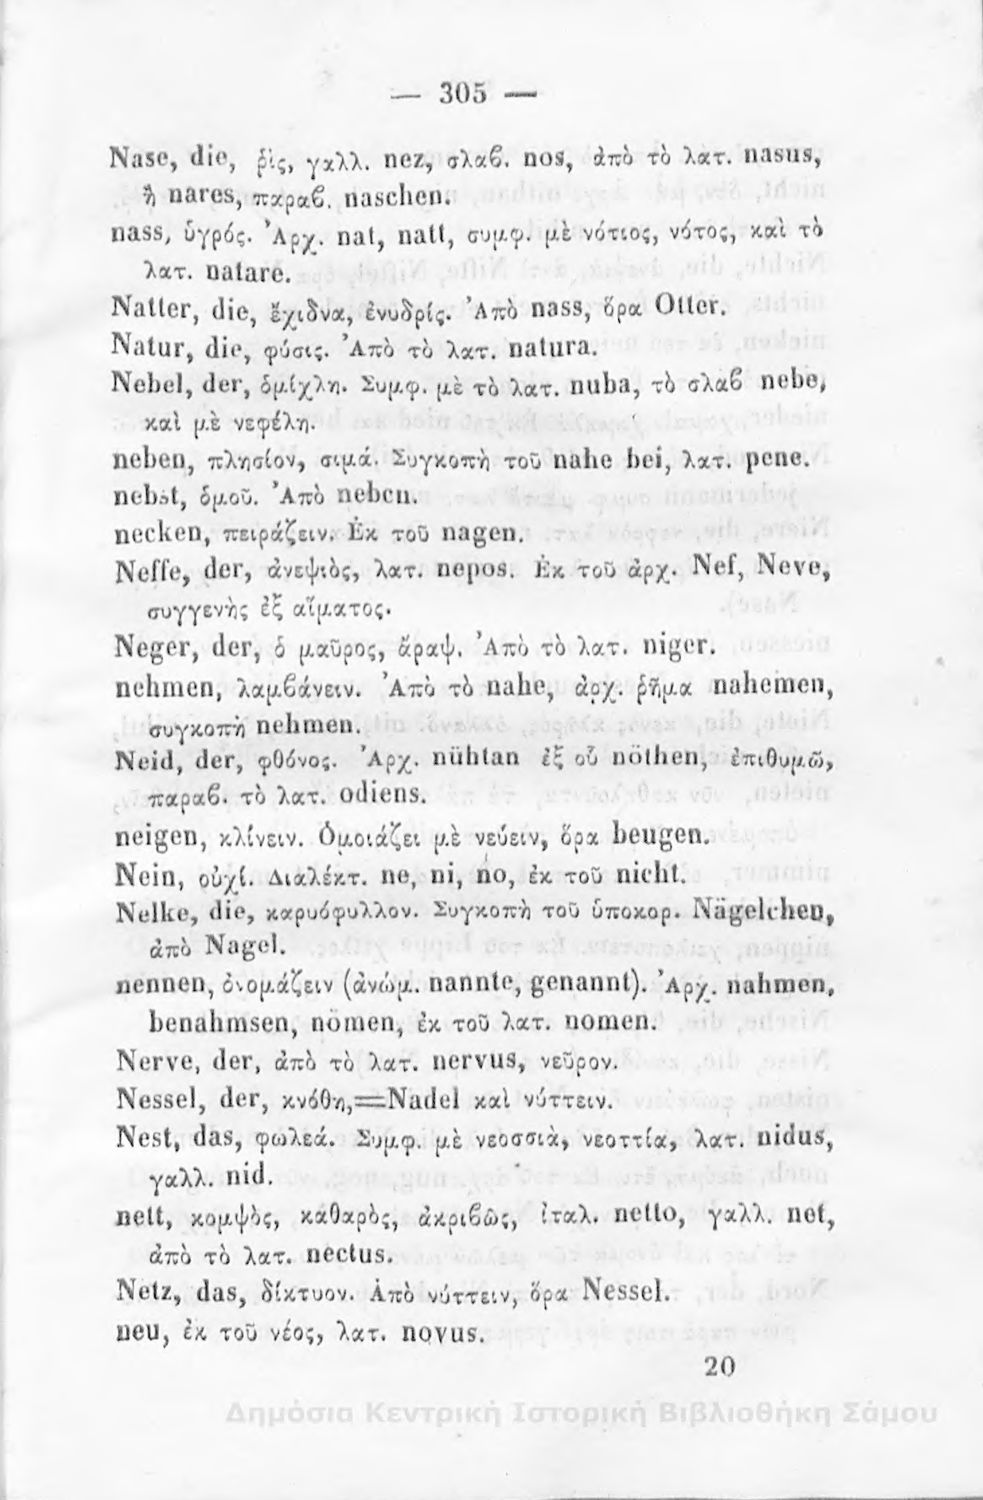 — 305 —
Nase, die, ῥὶς, γαλλ. nez, σλαβ. nos, ἀπὸ τὸ λατ. nasus,
ἢ nares, παραβ. naschen.
nass, ὑγρός. Ἀρχ. nat, natt, συμφ. μὲ νότιος, νότος, καὶ τὸ
λατ. natare.
Natter, die, ἔχιδνα, ἐνυδρίς. Ἀπὸ nass, ὅρα Otter.
Natur, die, φύσις. Ἀπὸ τὸ λατ. natura.
Nebel, der, ὁμίχλη. Συμφ. μὲ τὸ λατ. nuba, τὸ σλαβ nebe,
καὶ μὲ νεφέλη.
neben, πλησίον, σιμά. Συγκοπὴ τοῦ nahe bei, λατ. pene.
nebst, ὁμοῦ. Ἀπὸ neben.
necken, πειράζειν. Ἐκ τοῦ nagen.
Neffe, der, ἀνεψιὸς, λατ. nepos. Ἐκ τοῦ ἀρχ. Nef, Neve,
συγγενὴς ἐξ αἵματος.
Neger, der, ὁ μαῦρος, ἄραψ. Ἀπὸ τὸ λατ. niger.
nehmen, λαμβάνειν. Ἀπὸ τὸ nahe, ἀρχ. ῥῆμα naheinen,
συγκοπὴ nehmen.
Neid, der, φθόνος. Ἀρχ. nühtan ἐξ οὗ nöthen, ἐπιθυμῶ,
παραβ. τὸ λατ. odiens.
neigen, κλίνειν. Ὁμοιάζει μὲ νεύειν, ὅρα beugen.
Nein, οὐχί. Διαλέκτ. ne, ni, no, ἐκ τοῦ nicht.
Nelke, die, καρυόφυλλον. Συγκοπὴ τοῦ ὑποκορ. Nägelchen,
ἀπὸ Nagel.
nennen, ὀνομάζειν (ἀνώμ. nannte, genannt). Ἀρχ. nahmen,
benahmsen, nömen, ἐκ τοῦ λατ. nomen.
Nerve, der, ἀπὸ τὸ λατ. nervus, νεῦρον.
Nessel, der, κνόθη,=Nadel καὶ νύττειν.
Nest, das, φωλεά. Συμφ. μὲ νεοσσιὰ, νεοττία, λατ. nidus,
γαλλ. nid.
nett, κομψὸς, καθαρὸς, ἀκριβῶς, ἰταλ. netto, γαλλ. net,
ἀπὸ τὸ λατ. nectus.
Netz, das, δίκτυον. Ἀπὸ νύττειν, ὅρα Nessel.
neu, ἐκ τοῦ νέος, λατ. novus.
20
Δημόσια Κεντρική Ιστορική Βιβλιοθήκη Σάμου